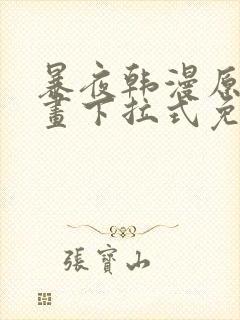 暴夜韩漫原
畫下拉式免
張寶山